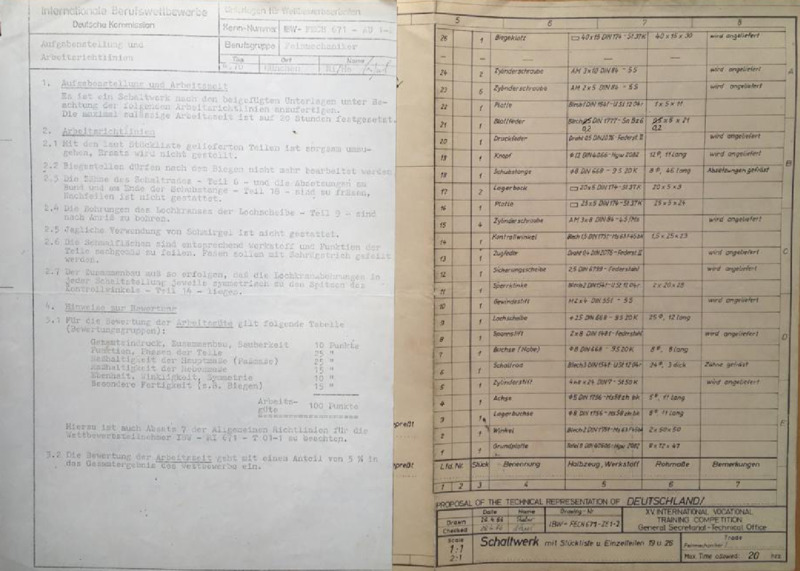 Internationale Berufswettbewerbe
Deutsche Kommission
Unterlagen für Wettbewerbsarbeiten
Kenn-Nummer: IBW-FECH 671 -
Aufgabenstellung und
Arbeitsrichtlinien
Berufsgruppe Feinmechaniker
Tag Ort Name
München
1. Aufgabenstellung und Arbeitszeit
Es ist ein Schaltwerk nach den beigefügten Unterlagen unter Be-
achtung der folgenden Arbeitsrichtlinien anzufertigen.
Die maximal zulässige Arbeitszeit ist auf 20 Stunden festgesetzt.
2. Arbeitsrichtlinien
2.1 Mit den laut Stückliste gelieferten Teilen ist sorgsam umzu-
gehen, Ersatz wird nicht gestellt.
2.2 Biegestellen dürfen nach dem Biegen nicht mehr bearbeitet werden.
2.3 Die Zähne des Schaltrades - Teil 6 - und die Absetzungen am
Bund und am Ende der Schubstange - Teil 18 - sind zu fräsen,
Nachfeilen ist nicht gestattet.
2.4 Die Bohrungen des Lochkranzes der Lochscheibe - Teil 9 - sind
nach Anriß zu bohren.
2.5 Jegliche Verwendung von Schmirgel ist nicht gestattet.
2.6 Die Sichtflächen sind entsprechend Werkstoff und Funktion der
Teile sachgemäß zu feilen.
2.7 Der Zusammenbau muß so erfolgen, daß die Lochkranzbohrungen in
jeder Schaltstellung jeweils symmetrisch zu den Spitzen des
Kontrollwinkels - Teil 14 - liegen.
4. Hinweise zur Bewertung
3.1 Für die Bewertung der Arbeitsgüte gilt folgende Tabelle
(Bewertungsgruppen):
Gesamteindruck, Zusammenbau, Sauberkeit 10 Punkte
Funktion, Passen der Teile 25 "
Maßhaltigkeit der Hauptmaße (Paßmaße) 25 "
Maßhaltigkeit der Nebenmaße 15 "
Ebenheit, Winkligkeit, Symmetrie 10 "
Besondere Fertigkeit (z.B. Biegen) 15 "
Arbeits-
güte 100 Punkte
Hierzu ist auch Absatz 7 der Allgemeinen Richtlinien für die
Wettbewerbsteilnehmer IBW - RI 671 - T 01-1 zu beachten.
3.2 Die Bewertung der Arbeitszeit geht mit einem Anteil von 5 % in
das Gesamtergebnis des Wettbewerbs ein.
5 6 7 8
25 1 Biegeklotz 40x15 DIN 174 - St 37K 40 x 15 x 30 wird angeliefert
24 2 Zylinderschraube AM 3x10 DIN 84 - 5S wird angeliefert
23 6 Zylinderschraube AM 2x5 DIN 84 - 5S wird angeliefert
22 1 Platte 1 x 5 x 11
21 1 Blattfeder 0,2 x 6 x 21
20 1 Druckfeder wird angeliefert
19 1 Knopf 12⌀, 11 lang wird angeliefert
18 1 Schubstange ⌀8 DIN 668 - 9S 20K 8⌀, 46 lang Absetzungen gefräst
17 2 Lagerbock 20x5 DIN 174 - St 37K 20 x 5 x 9
16 1 Platte 25x5 DIN 174 - St 37K 25 x 5 x 24
15 4 Zylinderschraube AM 3x8 DIN 84 - 4S/Ms wird angeliefert
14 1 Kontrollwinkel 1,5 x 25 x 23
13 1 Zugfeder wird angeliefert
12 1 Sicherungsscheibe 2,5 DIN 6799 - Federstahl wird angeliefert
11 1 Sperrklinke 2 x 20 x 28
10 1 Gewindestift M2x4 DIN 551 - 5S wird angeliefert
9 1 Lochscheibe ⌀25 DIN 668 - 9S 20K 25⌀, 12 lang
8 1 Spannstift 2x8 DIN 1481 - Federstahl wird angeliefert
7 1 Buchse (Nabe) ⌀8 DIN 668 - 9S 20K 8⌀, 9 lang
6 1 Schaltrad 26⌀, 3 dick Zähne gefräst
5 1 Zylinderstift wird angeliefert
4 1 Achse ⌀5 DIN 1756 - Ms58 zh bk 5⌀, 11 lang
3 1 Lagerbuchse ⌀8 DIN 1756 - Ms58 zh bk 8⌀, 11 lang
2 1 Winkel 2 x 50 x 50
1 1 Grundplatte 6 x 72 x 47
Lfd. Nr. Stück Benennung Halbzeug, Werkstoff Rohmaße Bemerkungen
1 2 3 4 5 6 7
PROPOSAL OF THE TECHNICAL REPRESENTATION OF DEUTSCHLAND/
Date Name Drawing-Nr
Drawn
Checked
IBW-FECH 671-Z51-2
XV. INTERNATIONAL VOCATIONAL
TRAINING COMPETITION
General Secretariat-Technical Office
Scale
1:1
2:1
Schaltwerk mit Stückliste u. Einzelteilen 19 u 25
Trade
Feinmechaniker
Max. Time allowed: 20 hrs